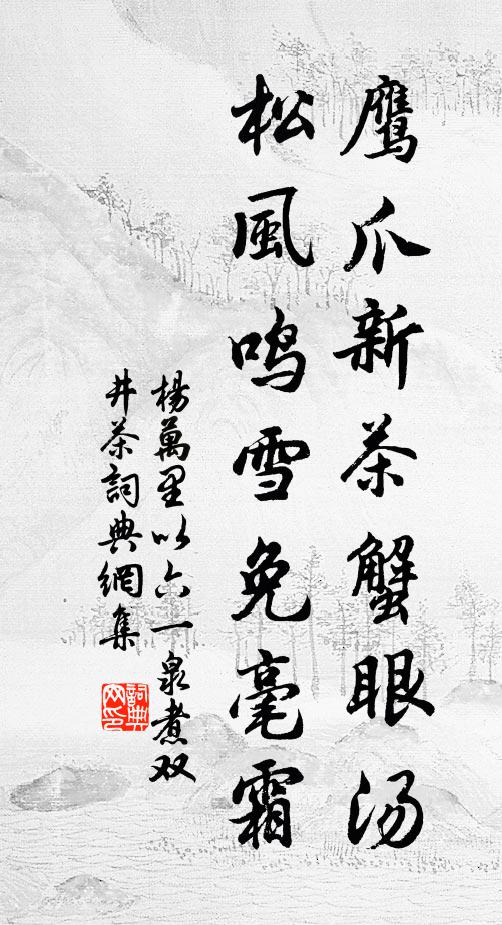 鹰爪新茶蟹眼汤
松風鸣雪免毫霜
楊萬里以六一泉煮双
井茶詞典網集
詞典网印